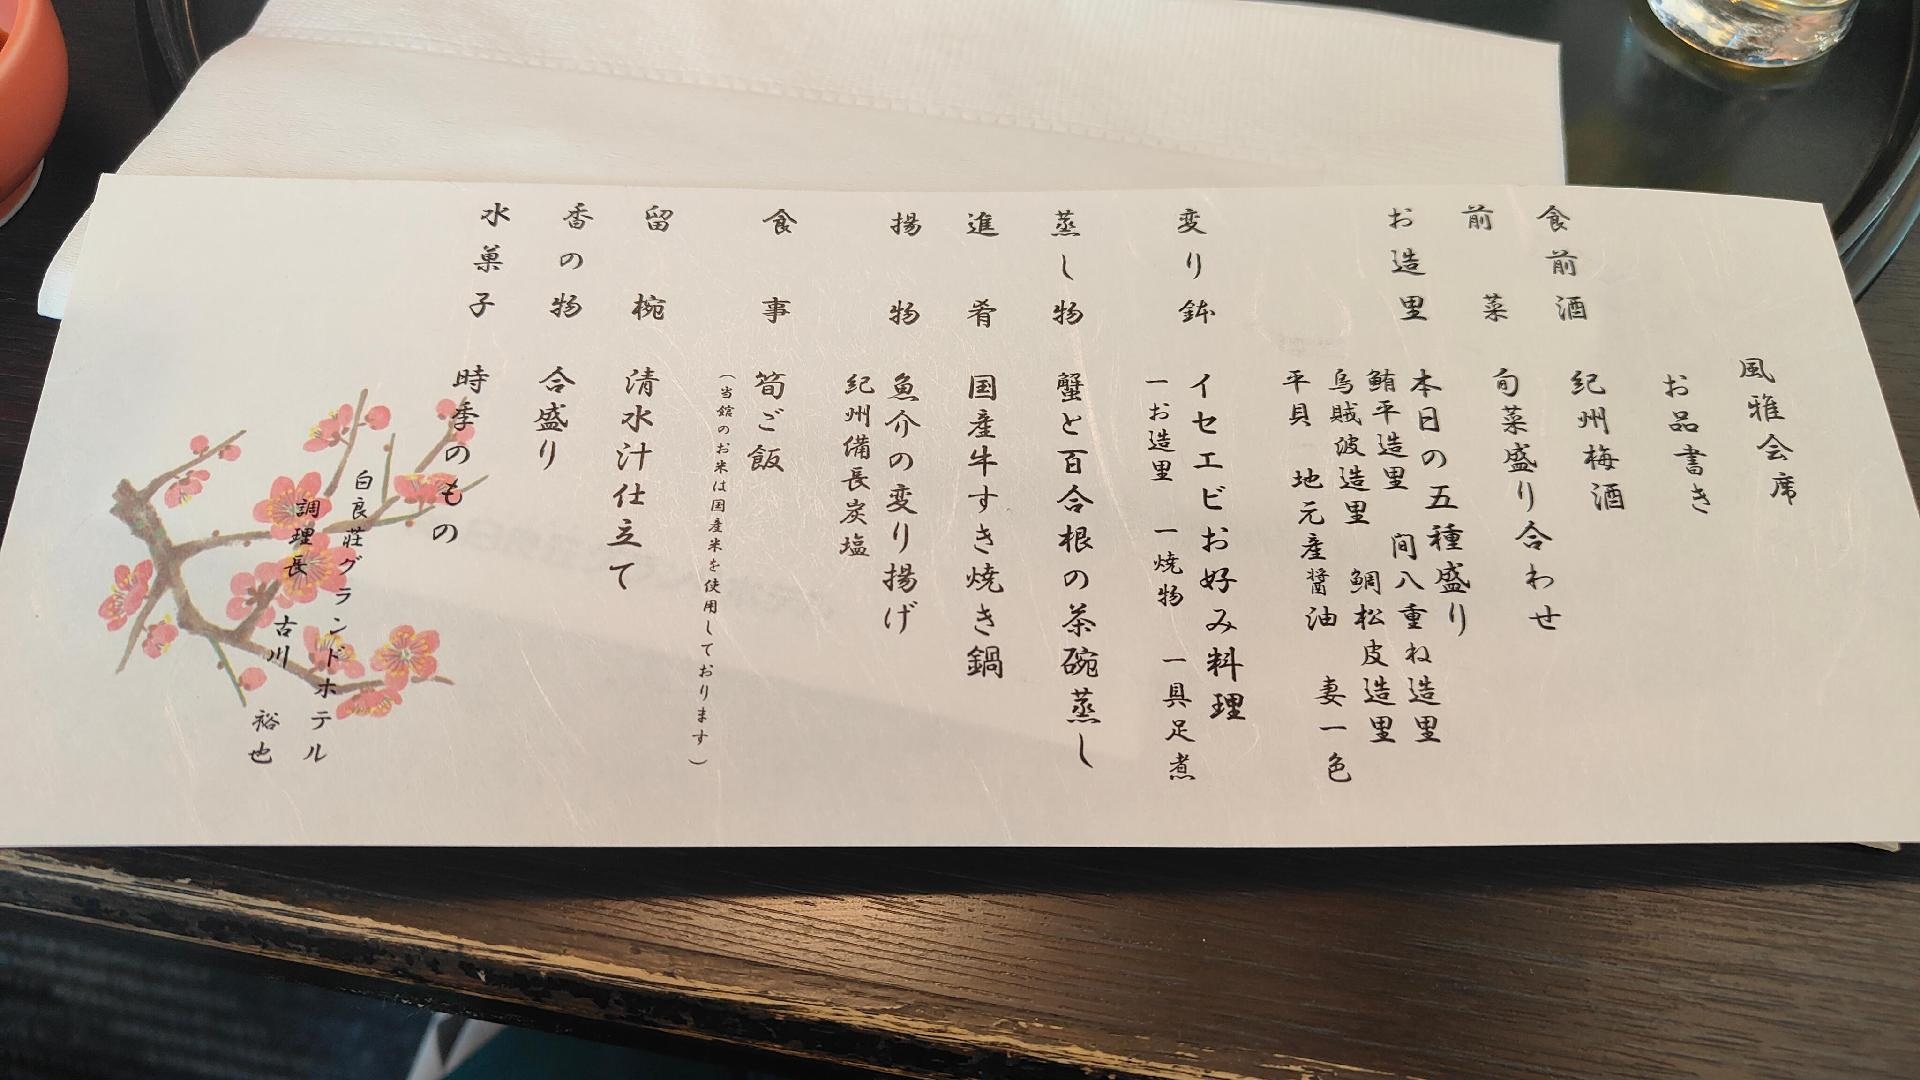 風雅会席
お品書き
食前酒 紀州梅酒
前菜 旬菜盛り合わせ
お造里 本日の五種盛り
鮪平造里 間八重ね造里
烏賊波造里 鯛松皮造里
平貝 地元産醤油 妻一色
変り鉢 イセエビお好み料理
一お造里 一焼物 一具足煮
蒸し物 蟹と百合根の茶碗蒸し
進肴 国産牛すき焼き鍋
揚物 魚介の変り揚げ
紀州備長炭塩
食事 筍ご飯
（当館のお米は国産米を使用しております）
留椀 清水汁仕立て
香の物 合盛り
水菓子 時季のもの
白良荘グランドホテル
調理長 古川 裕也